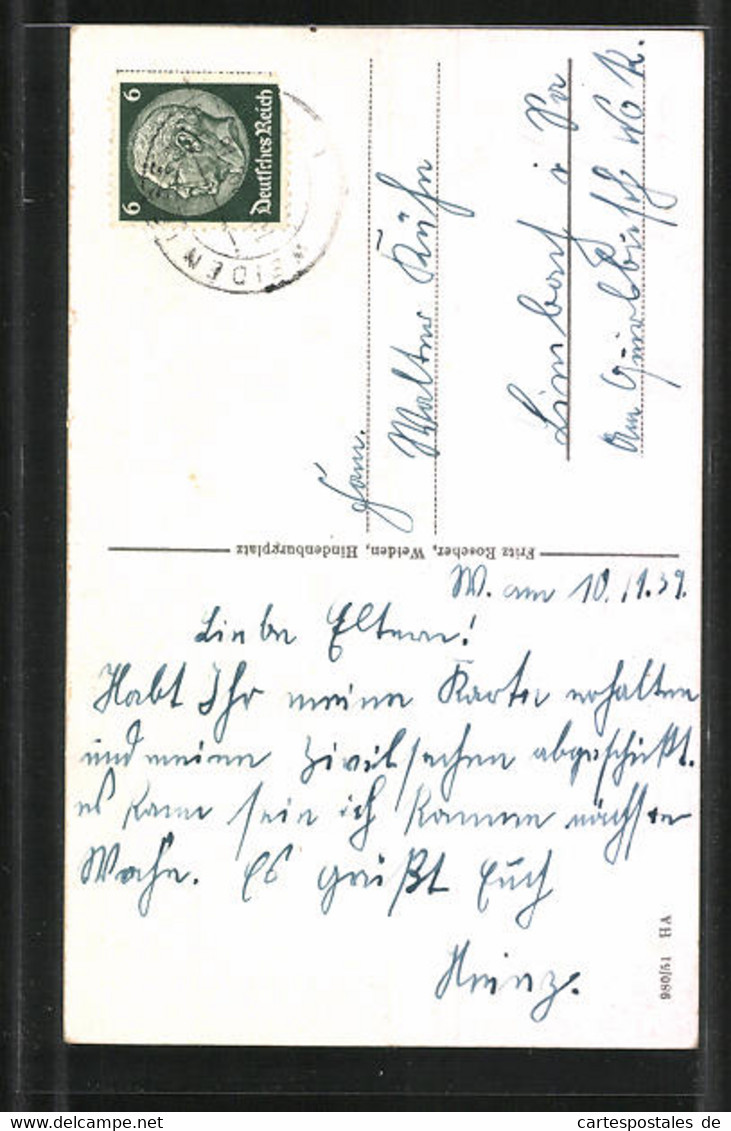 6 6
Deutsches Reich
WEIDEN
Fam.
Walter Kühn
Limbach i Sa
Am
Fritz Roscher, Weiden, Hindenburgplatz
W. am 10.11.39.
Liebe Eltern!
Habt Ihr meine Karte erhalten
und meine Zivilsachen abgeschickt.
es kann sein ich komme nächste
Woche. Es grüßt Euch
Heinz.
980/51 HA
www.cartespostales.de
cartespostales de